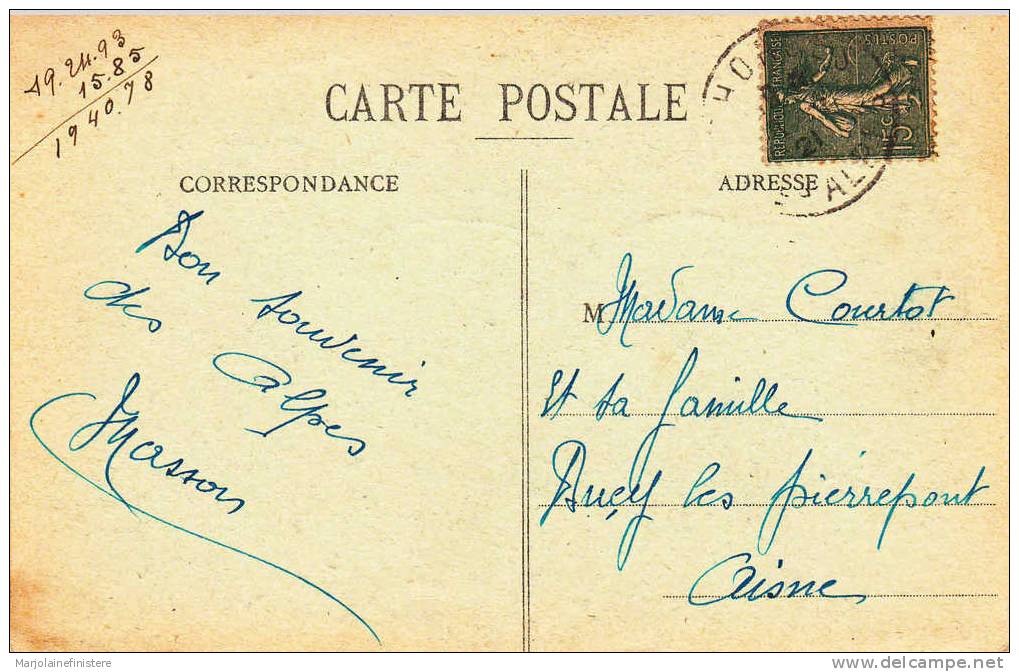 19.24.93
15.85
1940.78
CARTE POSTALE
RÉPUBLIQUE FRANÇAISE
POSTES
15c
21
CORRESPONDANCE
ADRESSE
Bon souvenir
des Alpes
Masson
M Madame Courtot
Et sa famille
Buçy les pierrepont
Aisne
Marjolainefinistere
www.delcampe.net